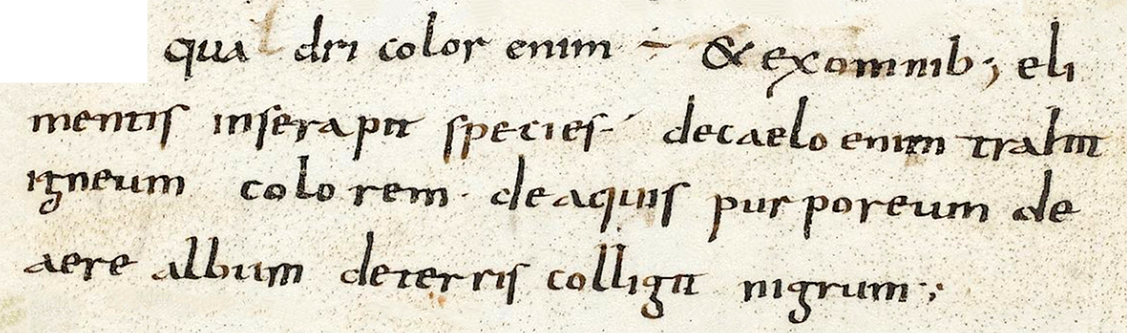 qua dri color enim ÷ & ex omnib; eli
mentis inse rapit species decaelo enim trahit
igneum colo rem · de aquis pur poreum de
aere album de terris colligit nigrum ·;